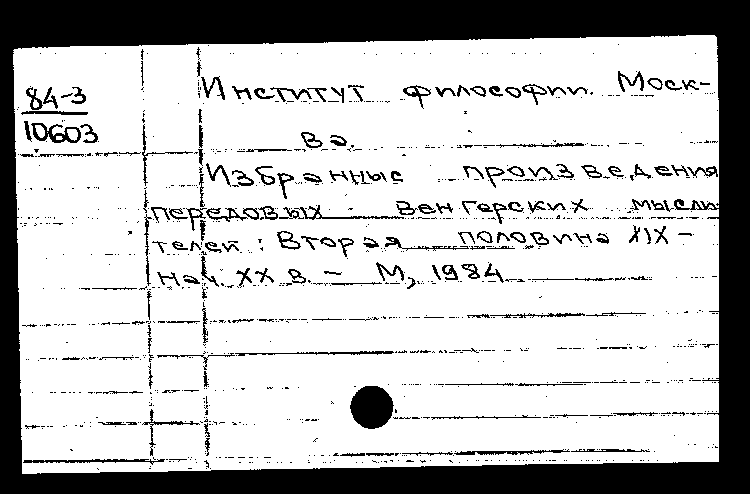 84-3
10603
Институт философии. Моск-
ва.
Избранные произведения
передовых венгерских мысли-
телей: Вторая половина XIX -
нач. XX в. - М, 1984